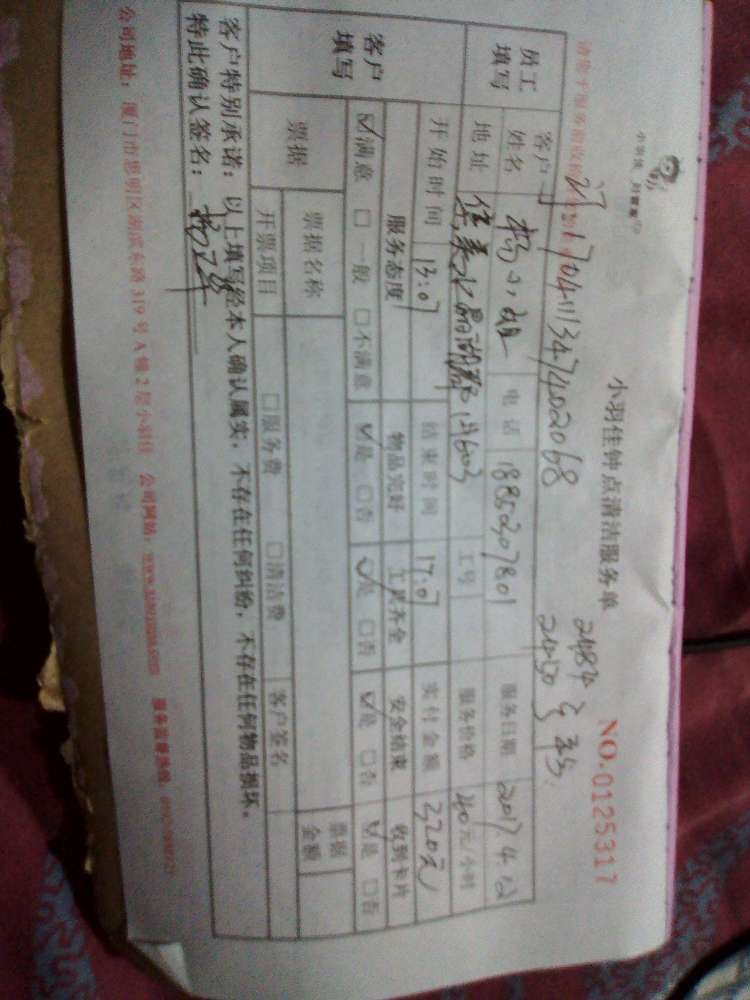 小羽佳钟点清洁服务单
NO.0125317
17041113474402068
员工填写 客户姓名 杨小姐 电话 服务日期 2017.4.12
地址 集美水晶湖郡 工号 服务价格 40元/小时
客户填写 开始时间 13:07 结束时间 17:07 实付金额 320元
服务态度 物品完好 工具齐全 安全结束 收到卡片
☑满意 □一般 □不满意 ☑是 □否 ☑是 □否 ☑是 □否 ☑是 □否
票据 票据名称 客户签名 票据金额
开票项目 □服务费 □清洁费
客户特别承诺：以上填写经本人确认属实，不存在任何纠纷，不存在任何物品损坏。
特此确认签名：
公司地址：厦门市思明区湖滨东路319号A幢2层小羽佳 公司网站： 服务监督热线：